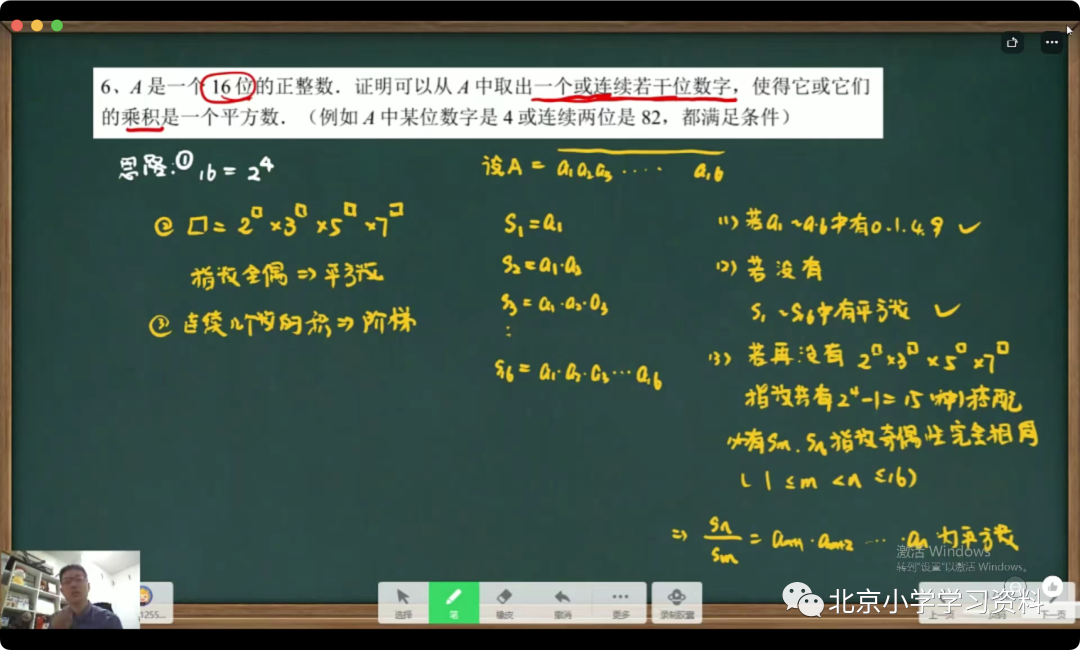 6、A 是一个 16 位的正整数．证明可以从 A 中取出一个或连续若干位数字，使得它或它们
的乘积是一个平方数．（例如 A 中某位数字是 4 或连续两位是 82，都满足条件）
思路:① 16 = 2⁴
② □ = 2^□ ×3^□ ×5^□ ×7^□
指数全偶 ⇒ 平方数
③ 连续几个数的积 ⇒ 阶梯
设A = a₁a₂a₃ ···· a₁₆
S₁ = a₁
S₂ = a₁·a₂
S₃ = a₁·a₂·a₃
⋮
S₁₆ = a₁·a₂·a₃ ··· a₁₆
(1) 若a₁~a₁₆中有0.1.4.9 ✓
(2) 若没有
S₁~S₁₆中有平方数 ✓
(3) 若再没有 2^□ ×3^□ ×5^□ ×7^□
指数共有 2⁴-1 = 15 (种) 搭配
必有Sm、Sn指数奇偶性完全相同
( 1 ≤ m < n ≤ 16)
⇒ Sn/Sm = am+1 · am+2 ··· · an 为平方数
激活 Windows
转到"设置"以激活 Windows。
1255...
选择 笔 橡皮 撤消 更多
北京小学学习资料
上一页 下一页